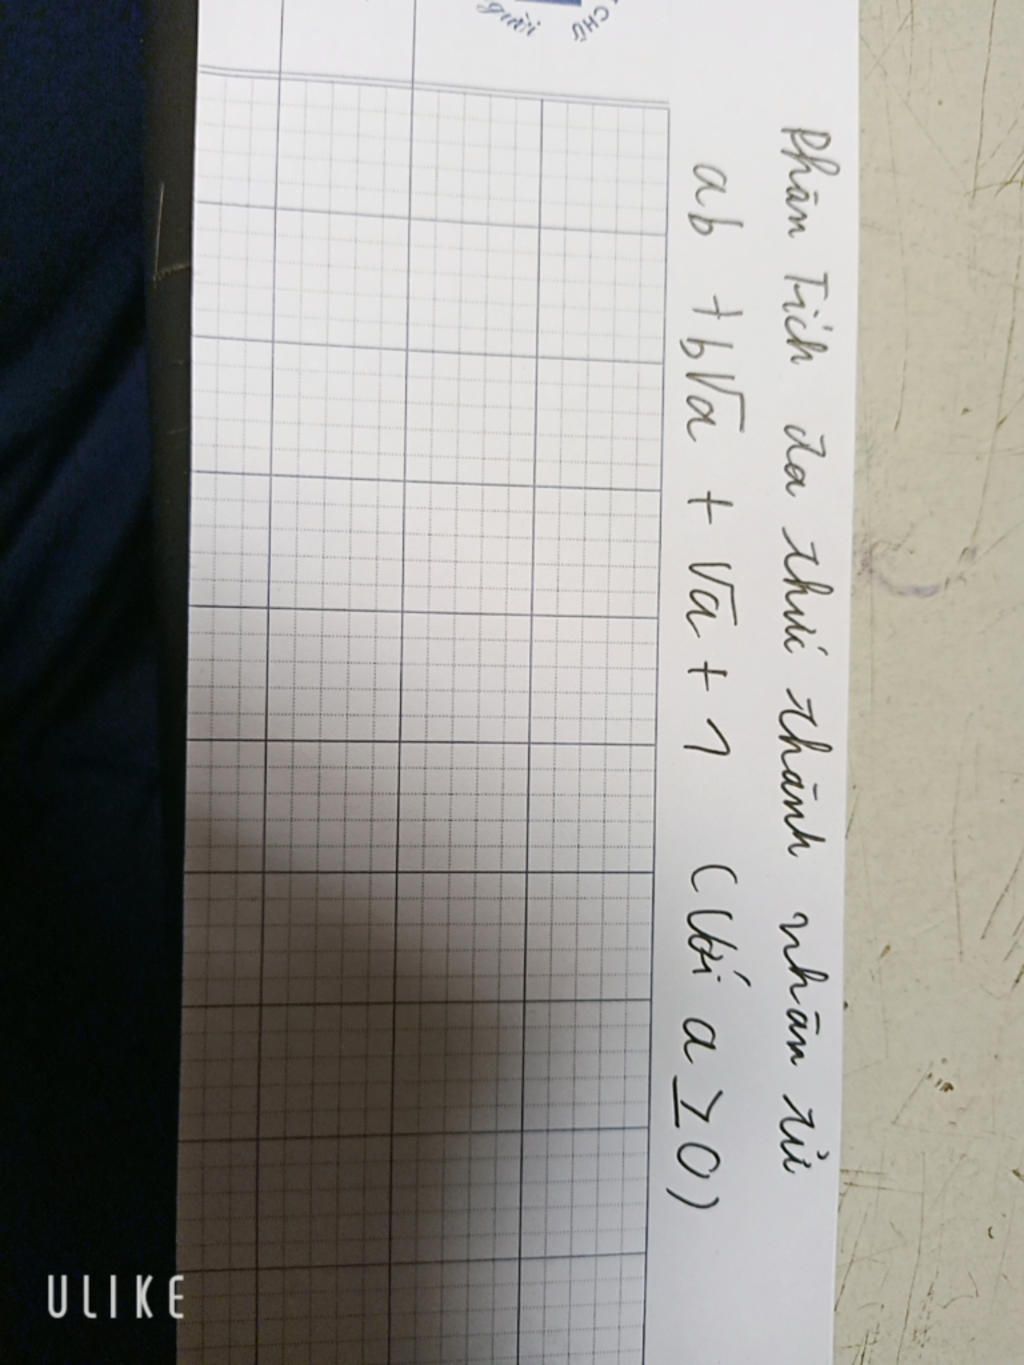 Phân Tích đa thức thành nhân tử
ab + b√a + √a + 1 (Với a ≥ 0)
gười
CHỮ
ULIKE